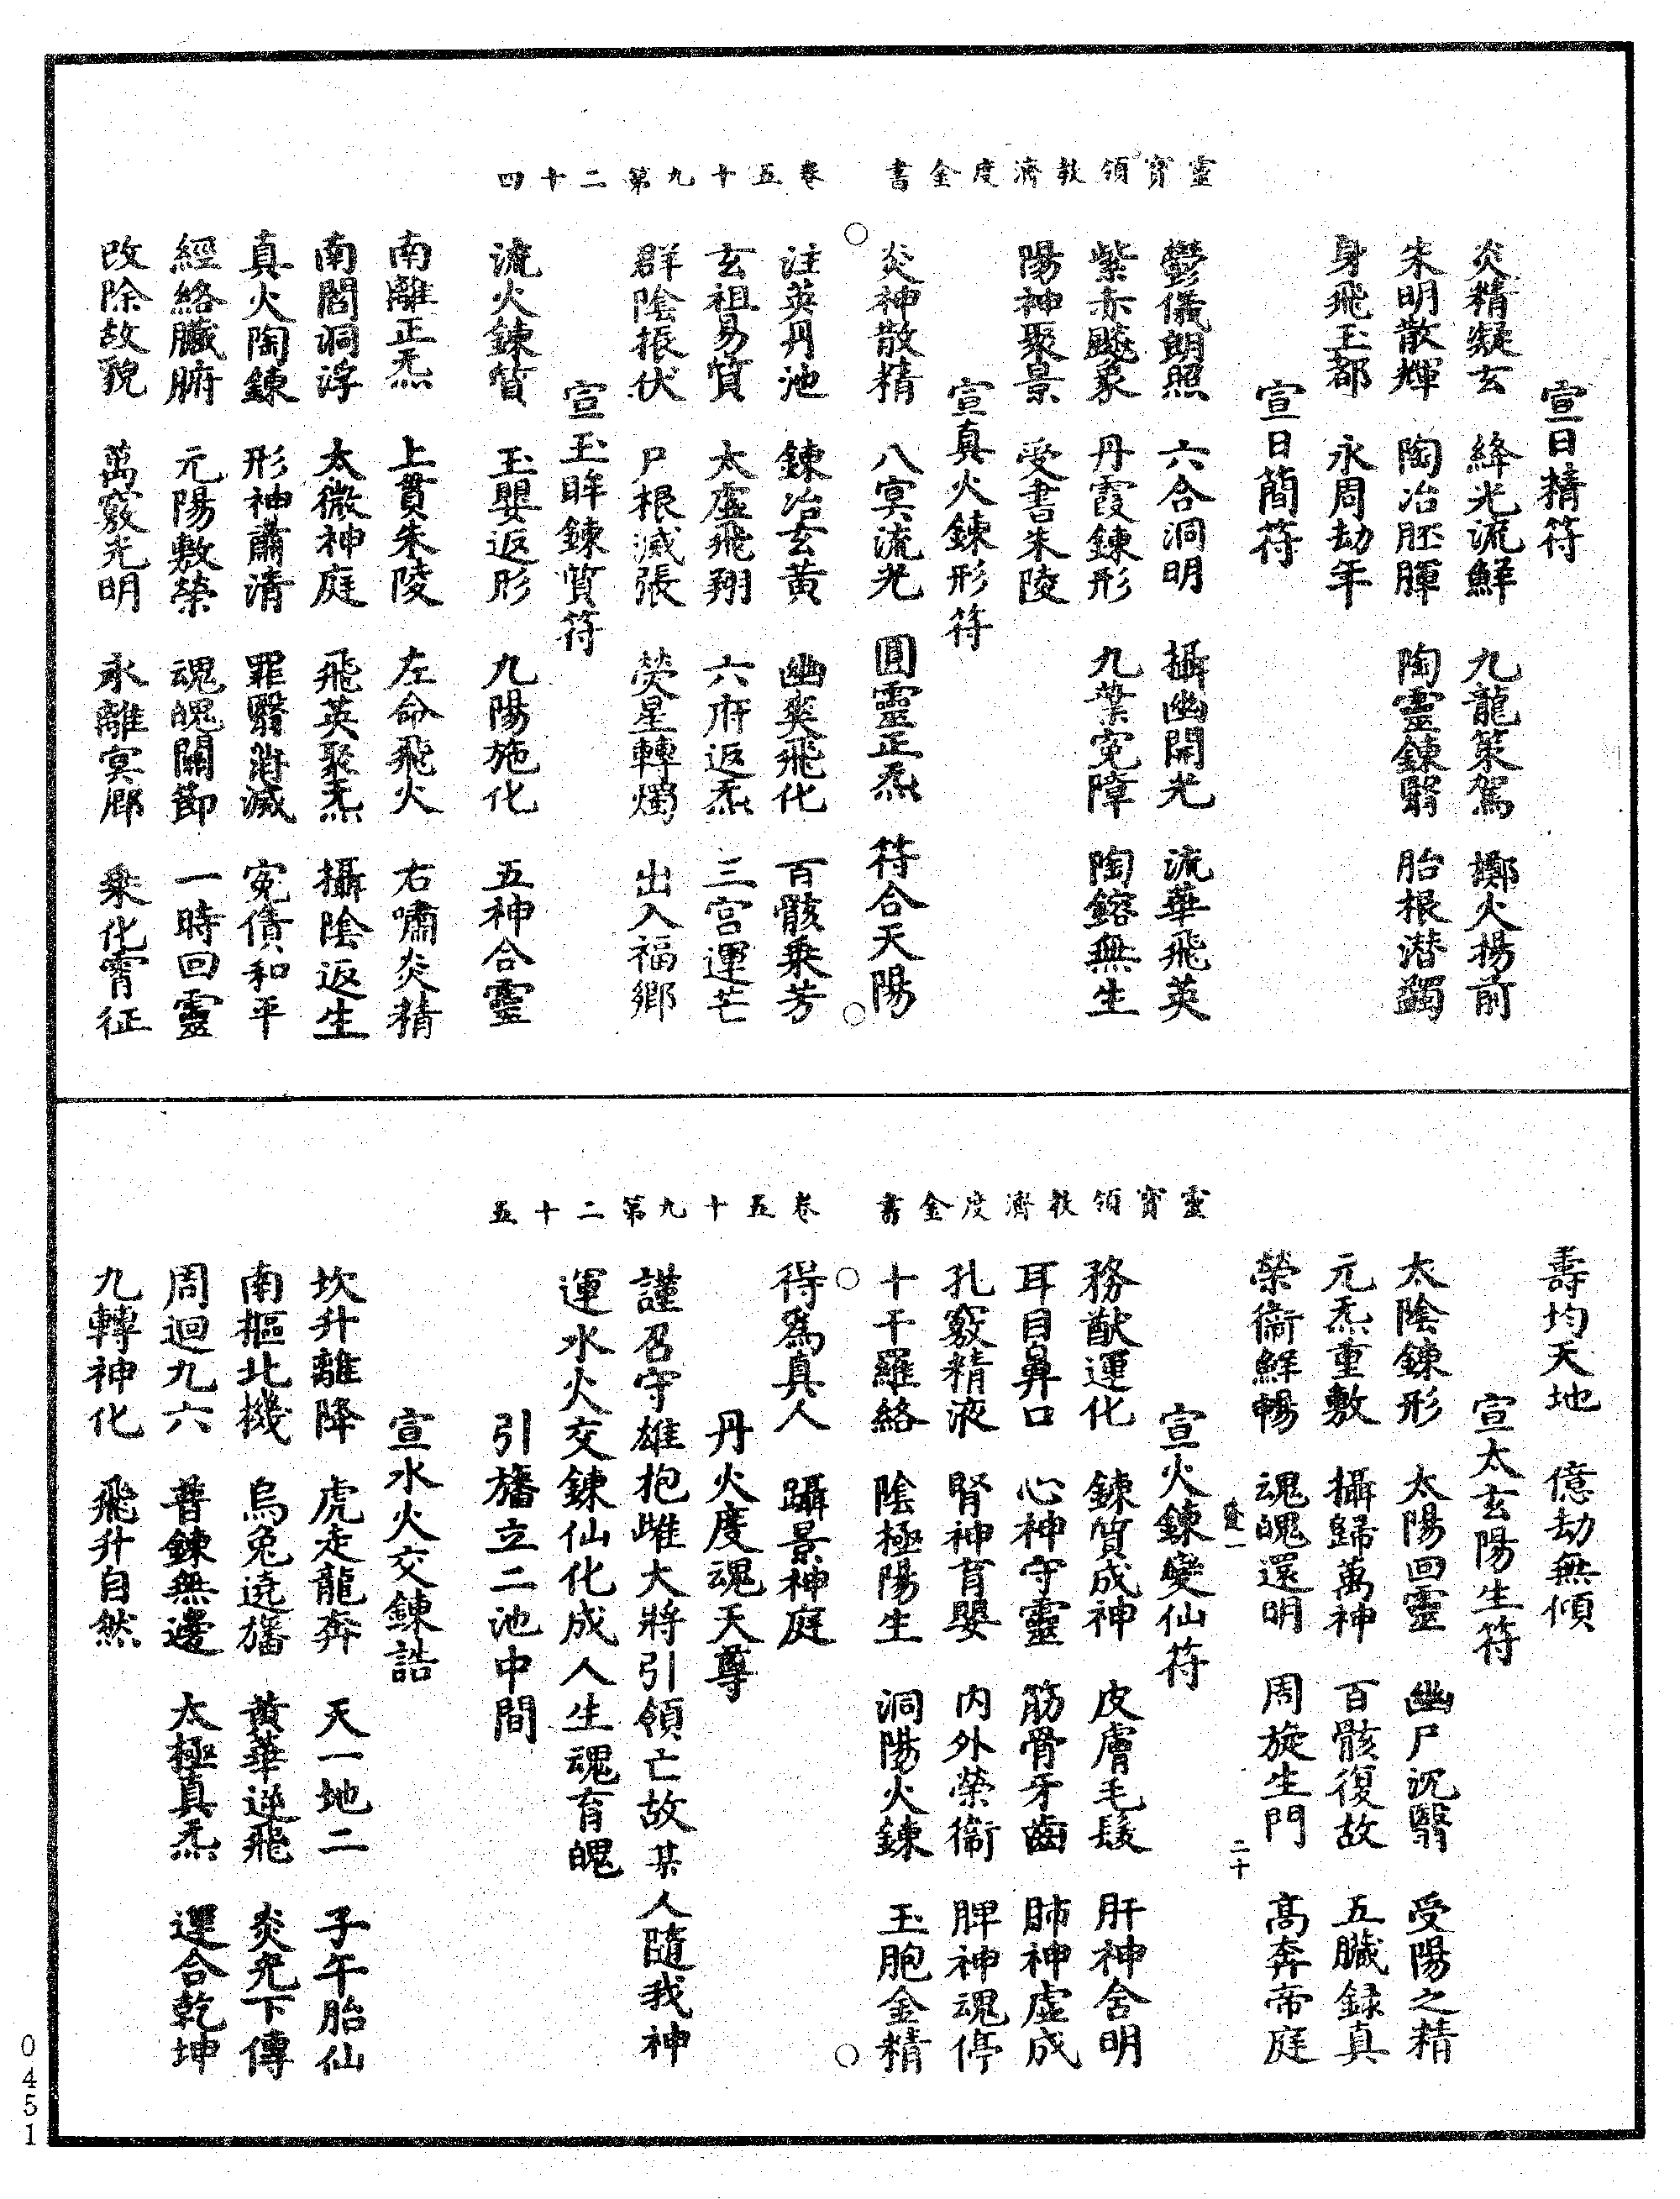 靈寶領教濟度金書　卷五十九第二十四
宣日精符
炎精凝玄　絳光流鮮　九龍策駕　擲火揚前
朱明散輝　陶冶胚腪　陶靈鍊翳　胎根潜蠲
身飛玉都　永周劫年
宣日簡符
鬱儀朗照　六合洞明　攝幽開光　流華飛英
紫赤飈象　丹霞鍊形　九葉寃障　陶鎔無生
陽神聚景　受書朱陵
宣真火鍊形符
炎神散精　八冥流光　圓靈正炁　符合天陽
注英丹池　鍊冶玄黄　幽爽飛化　百骸乗芳
玄祖易質　太虛飛翔　六府返炁　三宫運芒
群陰振伏　尸根滅張　熒星轉燭　出入福鄉
宣玉眸鍊質符
流火鍊質　玉嬰返形　九陽施化　五神合靈
南離正炁　上貫朱陵　左命飛火　右嘯炎精
南閻洞浮　太微神庭　飛英聚炁　攝陰返生
真火陶鍊　形神肅清　罪翳消滅　寃債和平
經絡臟腑　元陽敷榮　魂魄關節　一時回靈
改除故貌　萬竅光明　永離冥鄉　乗化霄征
靈寶領教濟度金書　卷五十九第二十五
壽均天地　億劫無傾
宣太玄陽生符
太陰鍊形　太陽回靈　幽尸沉翳　受陽之精
元炁重敷　攝歸萬神　百骸復故　五臟録真
榮衞鮮暢　魂魄還明　周旋生門　髙奔帝庭
二十
宣火鍊變仙符
務猷運化　鍊質成神　皮膚毛髮　肝神舍明
耳目鼻口　心神守靈　筋骨牙齒　肺神虛成
孔竅精液　腎神育嬰　内外榮衞　脾神魂停
十干羅絡　陰極陽生　洞陽火鍊　玉胞金精
得為真人　躡景神庭
丹火度魂天尊
謹召守雄抱雌大將引領亡故某人隨我神
運水火交鍊仙化成人生魂育魄
引旛立二池中間
宣水火交鍊誥
坎升離降　虎走龍奔　天一地二　子午胎仙
南樞北機　烏兔遶旛　黄華逆飛　炎兠下傳
周迴九六　普鍊無邊　太極真炁　運合乾坤
九轉神化　飛升自然
0451